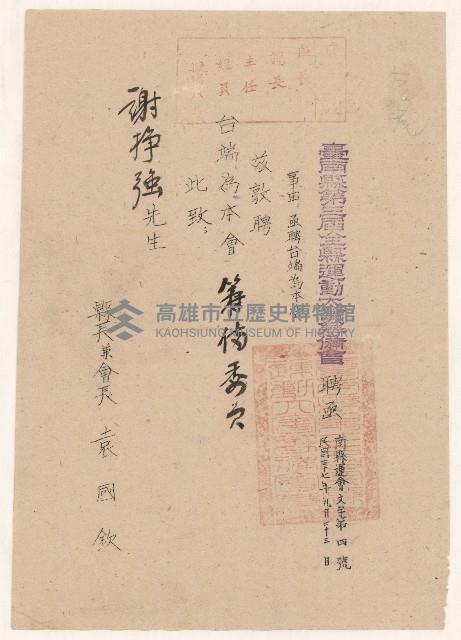 臺南縣第三屆全縣運動大會籌備會
聘函
南縣運會文字第四號
民國三十七年九月二十三日
事由 函聘台端為本
茲敦聘
台端為本會籌備委員
此致
謝掙強先生
縣長兼會長袁國欽
課長
主任
組員
高雄市立歷史博物館
KAOHSIUNG MUSEUM OF HISTORY